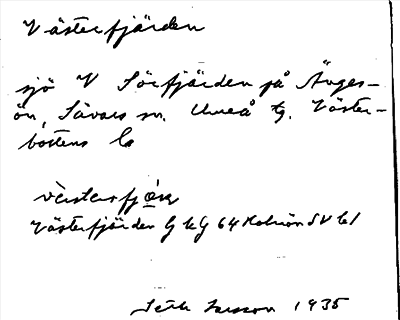 Västerfjärden
sjö V Sörfjärden på Änges-
ön, Sävars sn. Umeå tg. Väster-
bottens la
Västerfjärden G k G 64 Holmön SV bl
Seth Larsson 1935